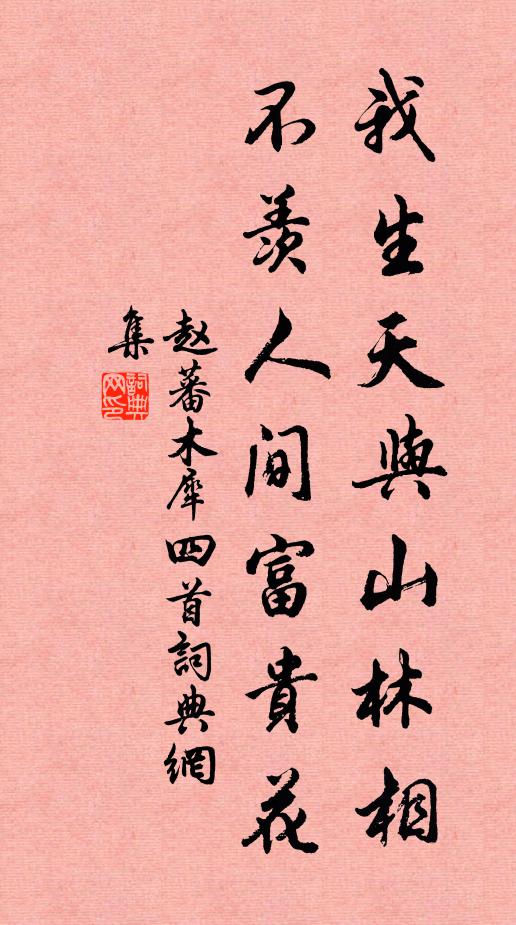 我生天與山林相
不羨人间富貴花
赵蕃木犀四首詞典網
集
詞典
网印